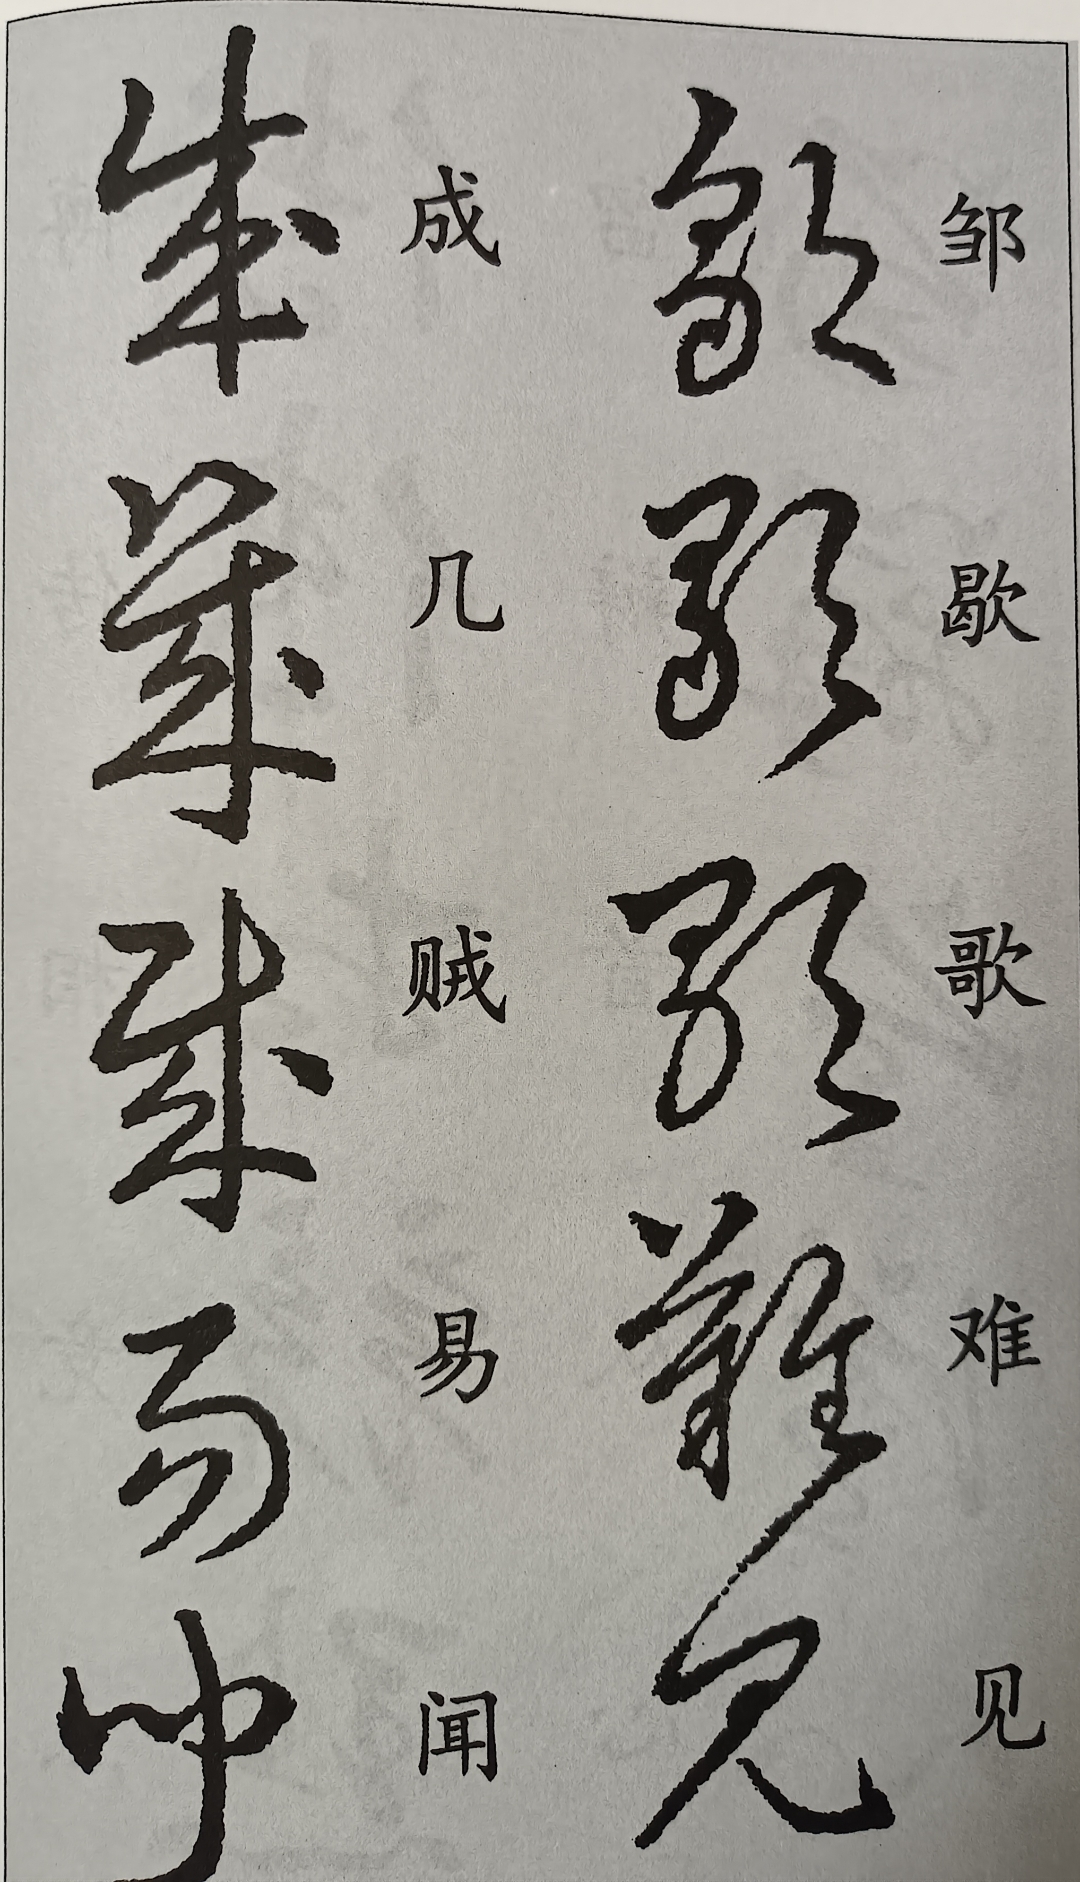 邹歇歌难见
成几贼易闻